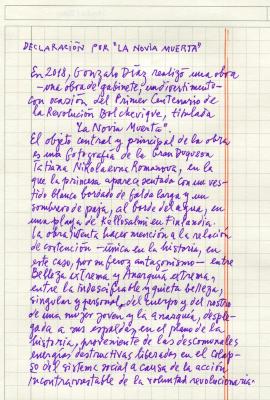 DECLARACIÓN POR "LA NOVIA MUERTA"
En 2018, Gonzalo Díaz realizó una obra
—una obra de gabinete, un divertimento—
con ocasión del Primer Centenario de
la Revolución Bolchevique, titulada
"La Novia Muerta".
El objeto central y principal de la obra
es una fotografía de la Gran Duquesa
Tatiana Nikolaevna Romanova, en la
que la princesa aparece sentada con un ves-
tido blanco bordado de falda larga y un
sombrero de paja, al borde del agua, en
una playa de en Finlandia.
La obra intenta hacer mención a la relación
de contención —única en la historia, en
este caso, por su feroz antagonismo— entre
Belleza extrema y Anarquía extrema,
entre la indescifrable y quieta belleza,
singular y personal, del cuerpo y del rostro
de una mujer joven y la anarquía, desple-
gada a sus espaldas en el plano de la
historia, proveniente de las descomunales
energías destructivas liberadas en el colap-
so del sistema social a causa de la acción
incontrarrestable de la voluntad revolucionaria.